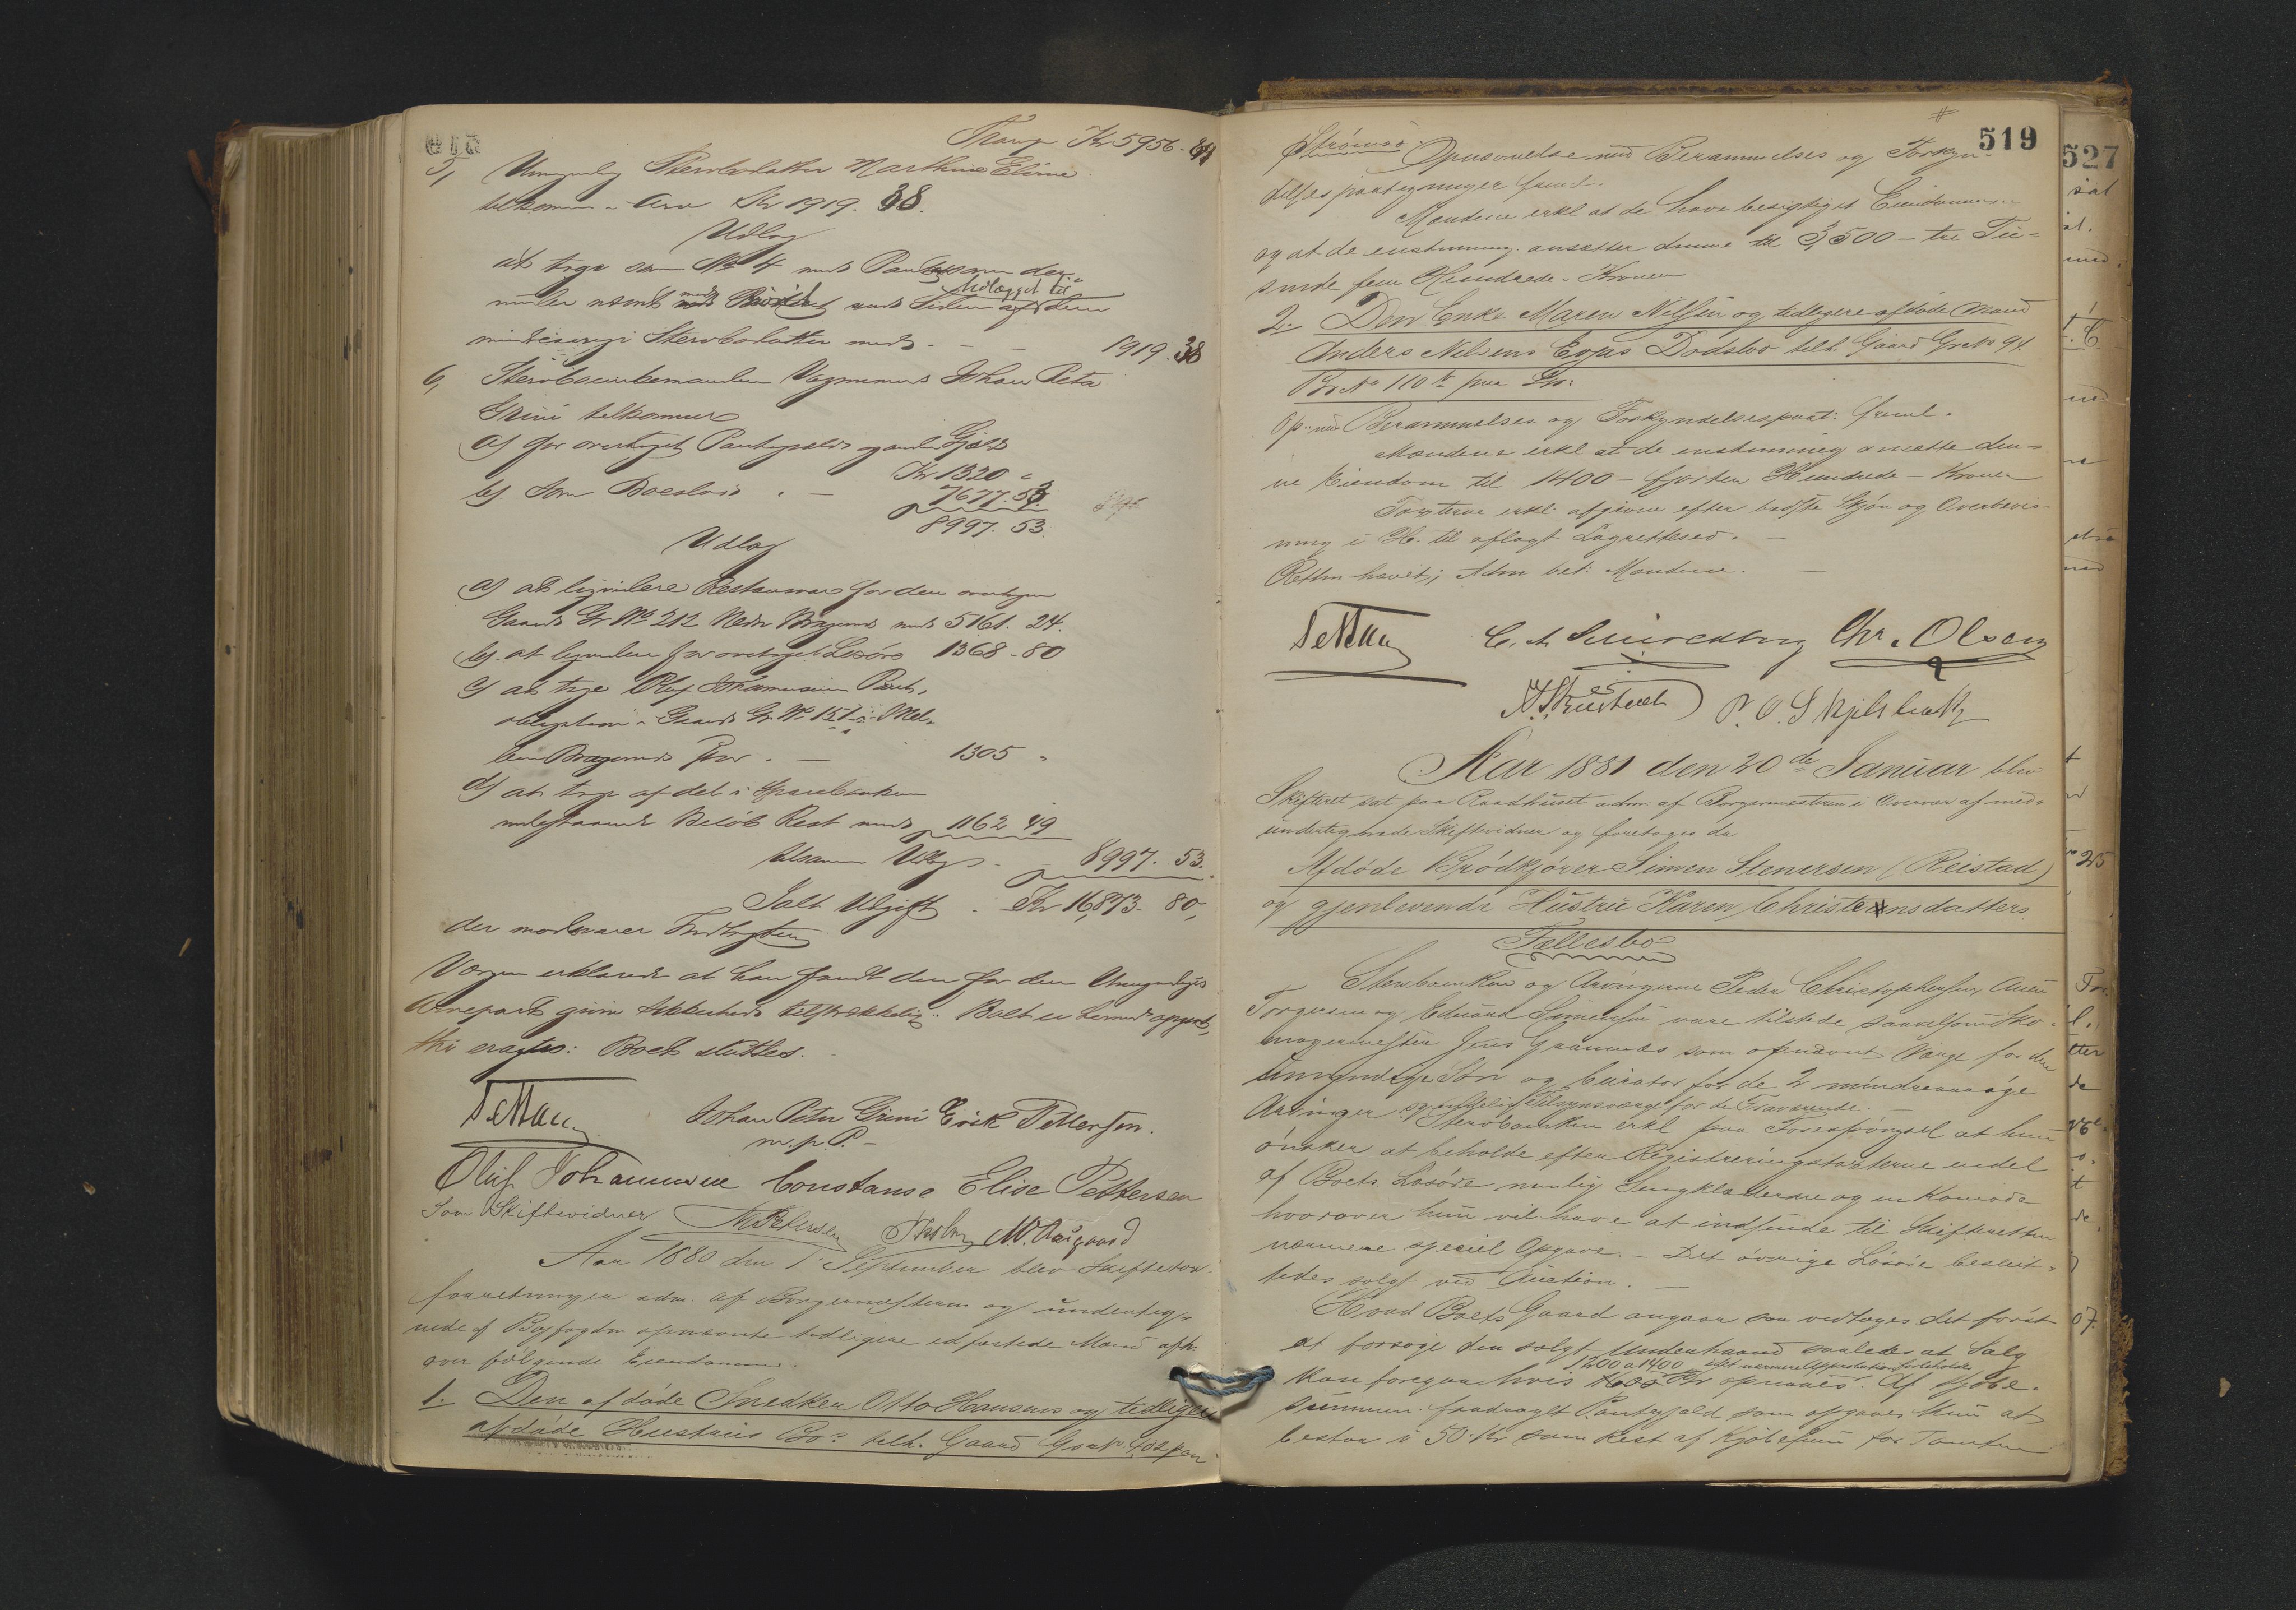 Trang Kr 5956. 89
5, Umyndig Stervbodatter Marthine Elvine
tilkommer i Arv Kr 1919. 38.
Udlæg
at tage som No 4 med
Udlægget til
mindreaarige Stervbodatter med - - 1919. 38
6, Stervboenkemanden Vognmand Johan Peter
Grini tilkommer
a) for overtaget Pantegjæld og anden Gjæld
Kr 1320 "
b) Som Boeslod . - 7677. 53
8997. 53.
Udlæg
a) at ligvidere Restansvar for den overtagne
Gaard Gr No 212 Nedre Bragernes med 5161. 24.
b) at ligvidere for overtaget Løsøre 1368 - 80
c) at tage Oluf Johannesens Pant-
obligation i Gaard Gr No 151 i Mel-
lem Bragernes for . - 1305 "
d) at tage af del i Sparebanken
indestaaende Beløb Rest med 1162 49
tilsammen Udlæg - 8997. 53.
Ialt Udgift . Kr 16,873. 80,
der modsvarer Indtægten
Værgen erklærede at han fandt den for den Umyndiges
Arvepart givne Sikkerhed tilstrækkelig. Boet er hermed opgjort,
thi eragtes: Boet sluttes.
Johan Peter Grini Erik Pettersen.
m. p. P. -
Oluf Johannesen Constanse Elise Pettersen
Som Skiftevidner M. Petersen M. Aasgaard
Aar 1880 den 1 September blev Skiftetax
forretningen adm. af Borgermesteren og underteg-
nede af Byfogden opnævnte tidligere edfæstede Mænd afh.
over følgende Eiendomme.
1. Den afdøde Snedker Otto Hansens og tidligere
afdøde Hustrues Bo tilh. Gaard Gr No 402 paa
519
527
Strømsø Opnævnelse med Berammelses og Forkyn-
delsespaategninger freml.
Mændene erkl at de have besigtiget Eiendommen
og at de enstemmig ansætter denne til 3,500 - tre Tu-
sinde fem Hundrede - Kroner
2. Den Enke Maren Nilsen og tidligere afdøde Mand
Anders Nelsens Egtes Dødsbo tilh. Gaard Gr No 94
Br No 110 b paa Str:
Op: med Berammelses og Forkyndelsespaat: freml.
Mændene erkl at de enstemmig ansætte den-
ne Eiendom til 1400 - fjorten Hundrede - Kroner
Taxterne erkl: afgivne efter bedste Skjøn og Overbevis-
ning i H. til aflagt Lagrettesed. -
Retten hævet; Adm bet: Mændene. -
Chr. Olsen
Aar 1881 den 20de Januar blev
Skifteret sat paa Raadhuset adm: af Borgermesteren i Overvær af med-
undertegnede Skiftevidner og foretoges da
Afdøde Brødkjører Simen Stenersen (Reistad)
og gjenlevende Hustru Karen Christensdatters
Fællesbo
Stervboenken og Arvingerne Peder Christophersen, Aven
Torgersen og Eduard Simensen vare tilstede saavelsom Sko-
magermester Jens Graanæs som opnævnt Værge for den
umyndige Søn og Curator for de 2 mindreaarige
Arvinger og ... Tilsynsværge for de Fraværende.
Stervboenken erkl paa Forespørgsel at hun
ønsker at beholde efter Registreringstaxterne endel
af Boets Løsøre nemlig Sengklæderne og en Komode
hvorover hun vil have at indsende til Skifteretten
nærmere speciel Opgave. - Det øvrige Løsøre beslut-
tedes solgt ved Auction. -
Hvad Boets Gaard angaar saa vedtoges det først
at forsøge den solgt Underhaand saaledes at Salg
1200 a 1400 idet nærmere Approbation forbeholdes
kan foregaa hvis 1600 Kr opnaaes. Af Kjøbe-
summen fradraget Pantegjæld som opgaves kun at
bestaa i 50 Kr som Rest af Kjøbesum for Tomten